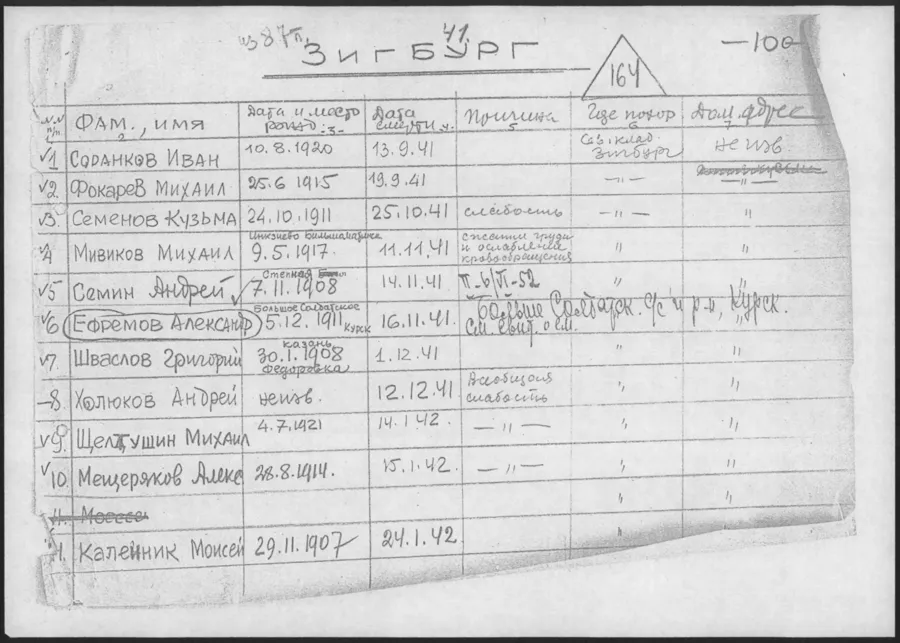 из 87 п. 41.
ЗИГБУРГ
164
-100
№№ п/п. ФАМ., ИМЯ Дата и место рожд. Дата смерти Причина Где похор Дом. адрес
2 3 4. 5 6 7
1 Соранков Иван 10.8.1920 13.9.41 Св. клад. Зигбург неизв
2 Фокарев Михаил 25.6 1915 19.9.41 —"— —"—
3. Семенов Кузьма 24.10.1911 25.10.41 слабость —"— "
4 Мивиков Михаил 9.5.1917. 11.11.41 и ослабление кровообращения " "
5 Семин Андрей Степная 7.11.1908 14.11.41 П-6/VI-52 "
6 Ефремов Александр Большое Солдатское 5.12.1911 Курск 16.11.41. Больше Солдатск. с/с и р-н, Курск.
см. о см.
7. Шваслов Григорий Казань 30.1.1908 Федоровка 1.12.41 " "
8. Холюков Андрей неизв. 12.12.41 Всеобщая слабость " "
9. Щелтушин Михаил 4.7.1921 14.1.42. —"— " "
10. Мещеряков Алекс 28.8.1914. 15.1.42. —"— " "
11. " "
11. Калейник Моисей 29.11.1907 24.1.42 " "